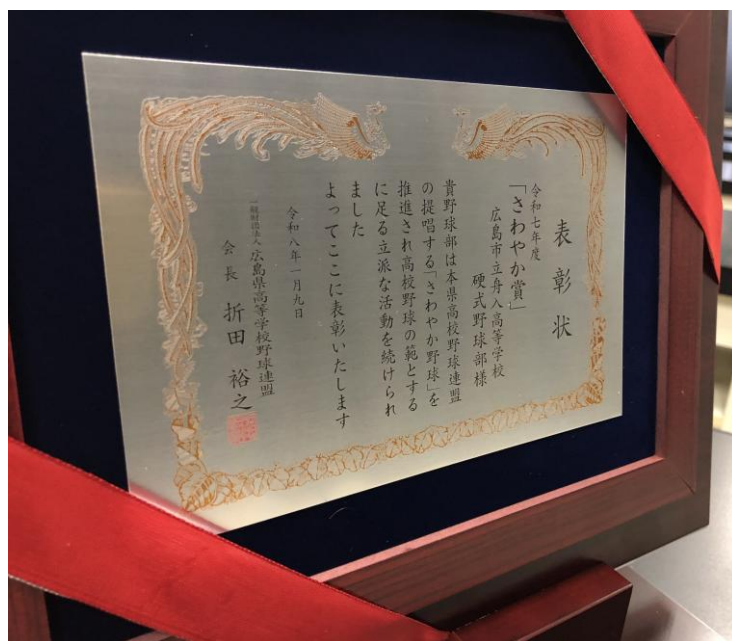 表彰状
令和七年度
「さわやか賞」
広島市立舟入高等学校
硬式野球部様
貴野球部は本県高校野球連盟
の提唱する「さわやか野球」を
推進され高校野球の範とする
に足る立派な活動を続けられ
ました
よってここに表彰いたします
令和八年一月九日
一般財団法人 広島県高等学校野球連盟
会長 折田裕之